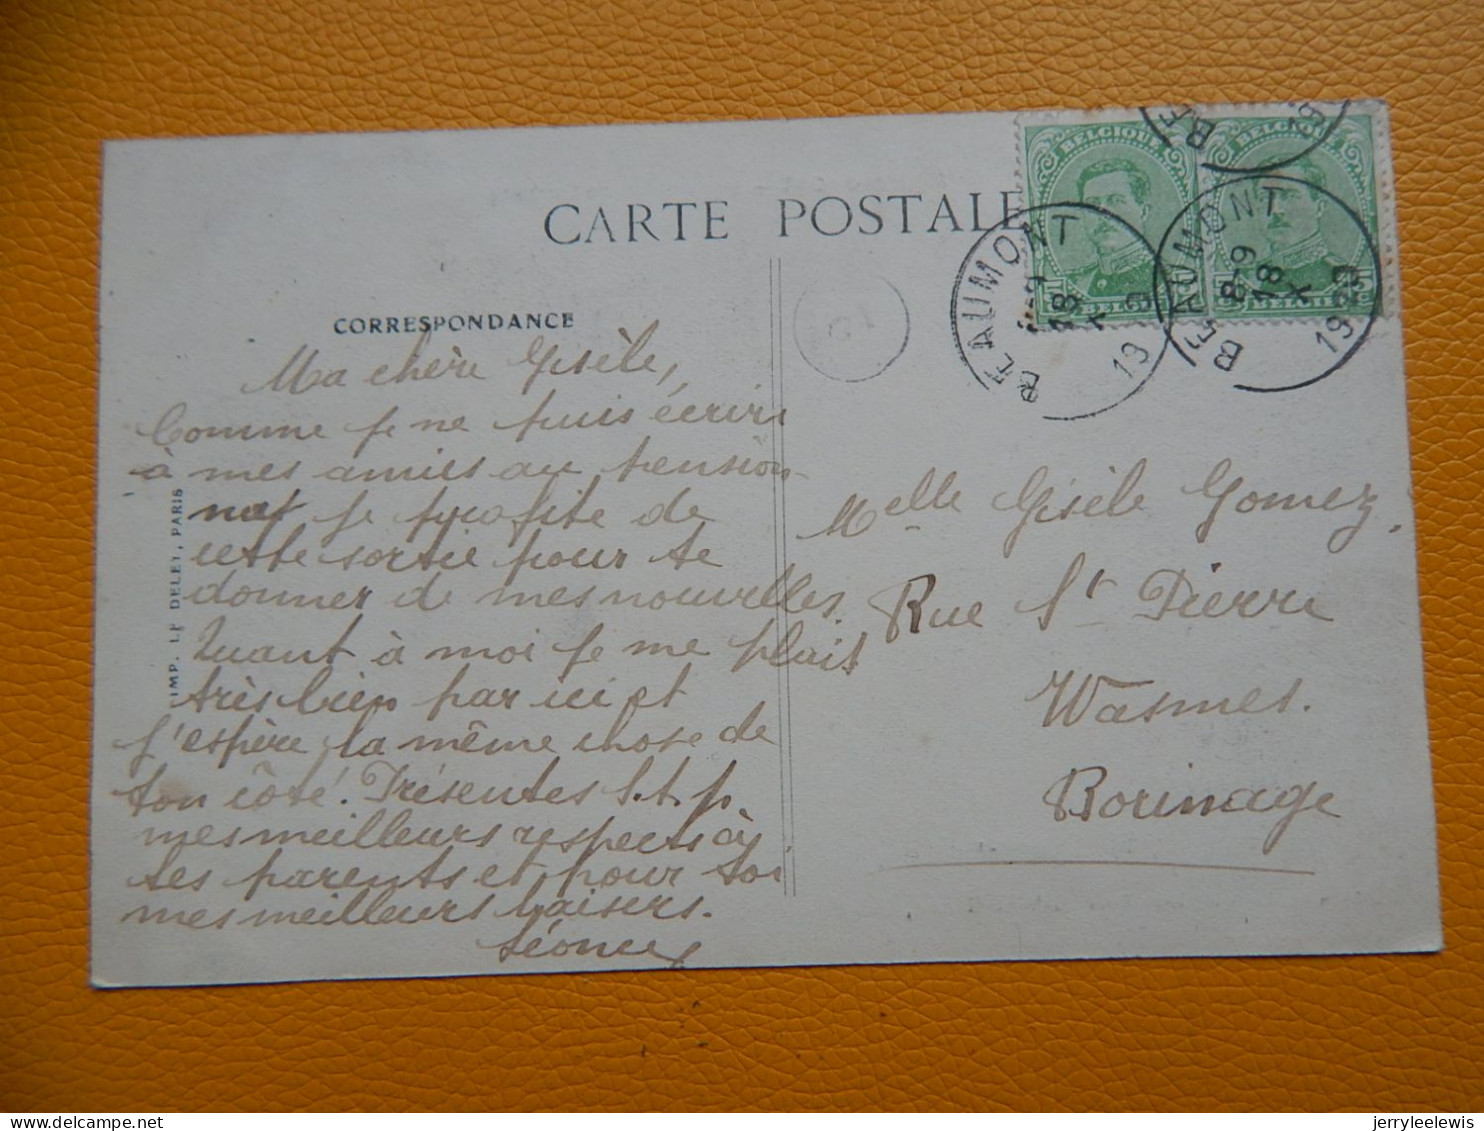 CARTE POSTALE
CORRESPONDANCE
Ma chère Gisèle,
Comme je ne puis écrire
à mes amies au pension-
nat je profite de
cette sortie pour te
donner de mes nouvelles.
Quant à moi je me plait
très bien par ici et
j'espère la même chose de
ton côté. Présentes S.t.p.
mes meilleurs respects à
tes parents et pour toi
mes meilleurs baisers.
IMP. LE DELEY, PARIS
BELGIQUE
BELGIQUE
BEAUMONT
18 X
19
BEAUMONT
8-9
18 X
19
Melle Gisèle Gomez.
Rue St Pierre
Wasmes.
Borinage
jerryleelewis